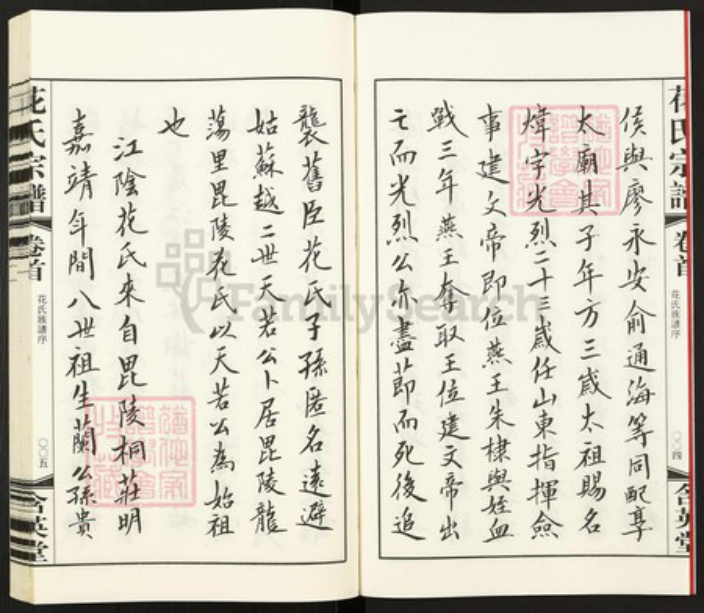 花氏宗譜
卷首
花氏族譜序
〇〇四
含英堂
侯與廖永安俞通海等同配享
太廟其子年方三歲太祖賜名
煒字光烈二十三歲任山東指揮僉
事建文帝即位燕王朱棣與姪血
戰三年燕王奪取王位建文帝出
亡而光烈公亦盡莭而死後追
襲舊臣花氏子孫匿名遠避
姑蘇越二世天若公卜居毘陵龍
蕩里毘陵花氏以天若公為始祖
也
江陰花氏來自毘陵桐莊明
嘉靖年間八世祖生蘭公孫貴
花氏宗譜
卷首
花氏族譜序
〇〇五
含英堂
FamilySearch